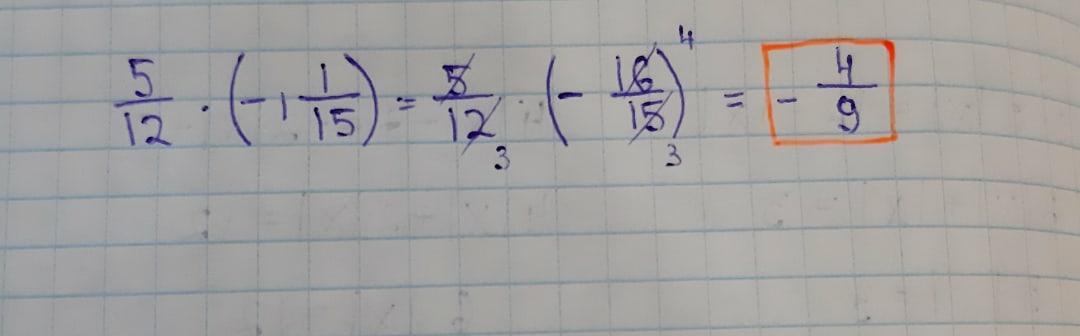 5/12 · (-1 1/15) = 5/12 3 · (- 16/15)4 3 = - 4/9